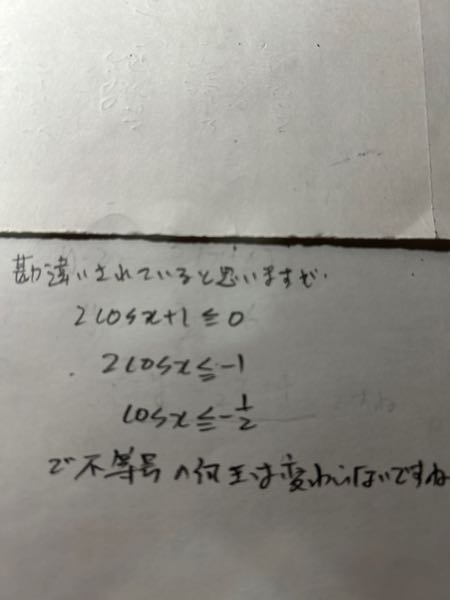 勘違いされていると思いますが.
2cosx+1≦0
2cosx≦-1
cosx≦-1/2
で不等号の向きは変わらないですね